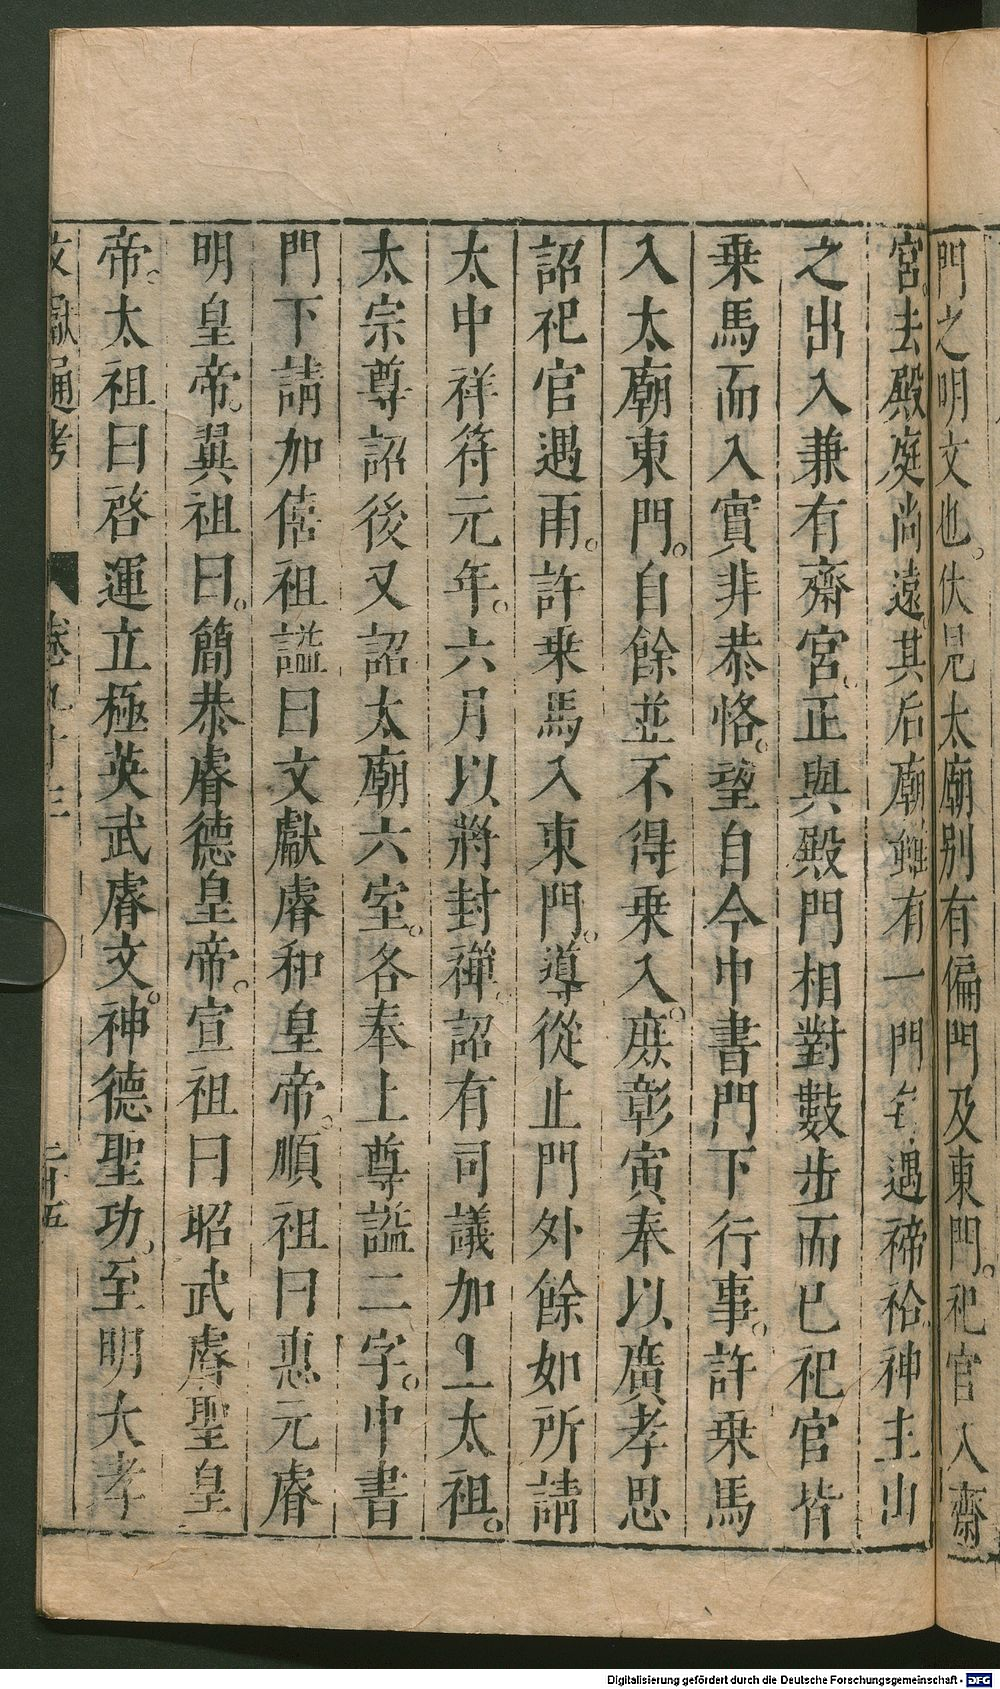 門之明文也。伏見太廟別有偏門及東門。祀官入齋
宮。去殿庭尚遠。其后廟雖有一門每遇禘祫。神主出
之出入兼有齋宮。正與殿門相對數步而已祀官皆
乗馬而入實非恭恪。望自今中書門下行事。許乗馬
入太廟東門。自餘並不得乗入。庶彰寅奉以廣孝思
詔祀官遇雨。許乗馬入東門。導從止門外餘如所請
太中祥符元年。六月以將封禪。詔有司議加上太祖。
太宗尊詔後又詔太廟六室。各奉上尊謚二字。中書
門下請加僖祖謚曰文獻睿和皇帝。順祖曰惠元睿
明皇帝。翼祖曰。簡恭睿德皇帝。宣祖曰昭武睿聖皇
帝。太祖曰啓運立極英武睿文。神德聖功。至明大孝
文獻通考 卷九十三 二十五
Digitalisierung gefördert durch die Deutsche Forschungsgemeinschaft - DFG